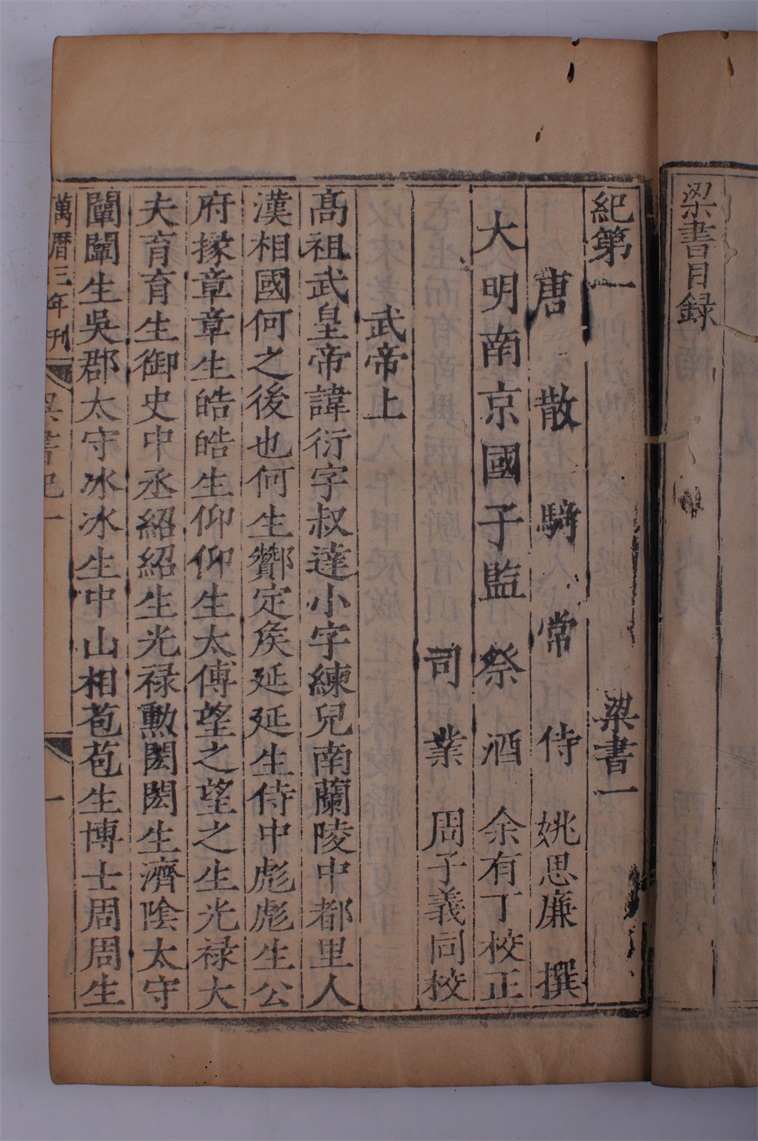 梁書目録
紀第一 梁書一
唐散騎常侍姚思廉撰
大明南京國子監祭酒余有丁校正
司業周子義同校
武帝上
髙祖武皇帝諱衍字叔達小字練兒南蘭陵中都里人
漢相國何之後也何生酇定侯延延生侍中彪彪生公
府掾章章生皓皓生仰仰生太傅望之望之生光禄大
夫育育生御史中丞紹紹生光禄勲閎閎生濟隂太守
闡闡生吳郡太守冰冰生中山相苞苞生博士周周生
萬曆三年刊 梁書紀一 一